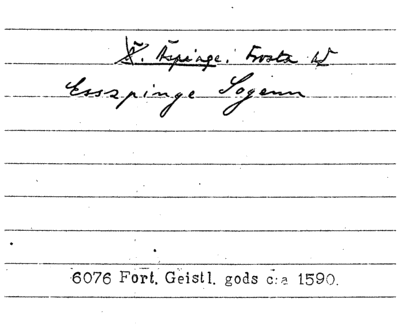 Äspinge. Frosta
Esszpinge Sogenn
6076 Fort. Geistl. gods c:a 1590.